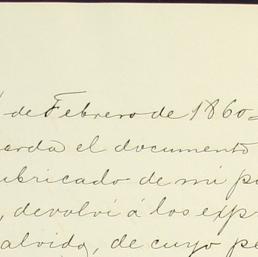 de Febrero de 1860=
arda el documento
ubricado de mi pu
, devolví á los expr
alvido, de cuyo pe